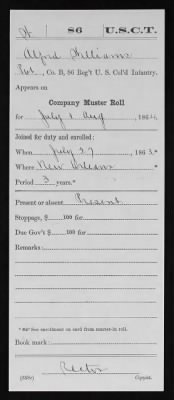 W | 86 | U.S.C.T.
Alfred Williams
Pvt, Co. B, 86 Reg't U. S. Col'd Infantry.
Appears on
Company Muster Roll
for July & Aug, 1864.
Joined for duty and enrolled:
When July 27, 1863.*
Where New Orleans
Period 3 years.*
Present or absent Present
Stoppage, $ 100 for
Due Gov't $ 100 for
Remarks:
* See enrollment on card from muster-in roll.
Book mark:
Rector
(358c) Copyist.